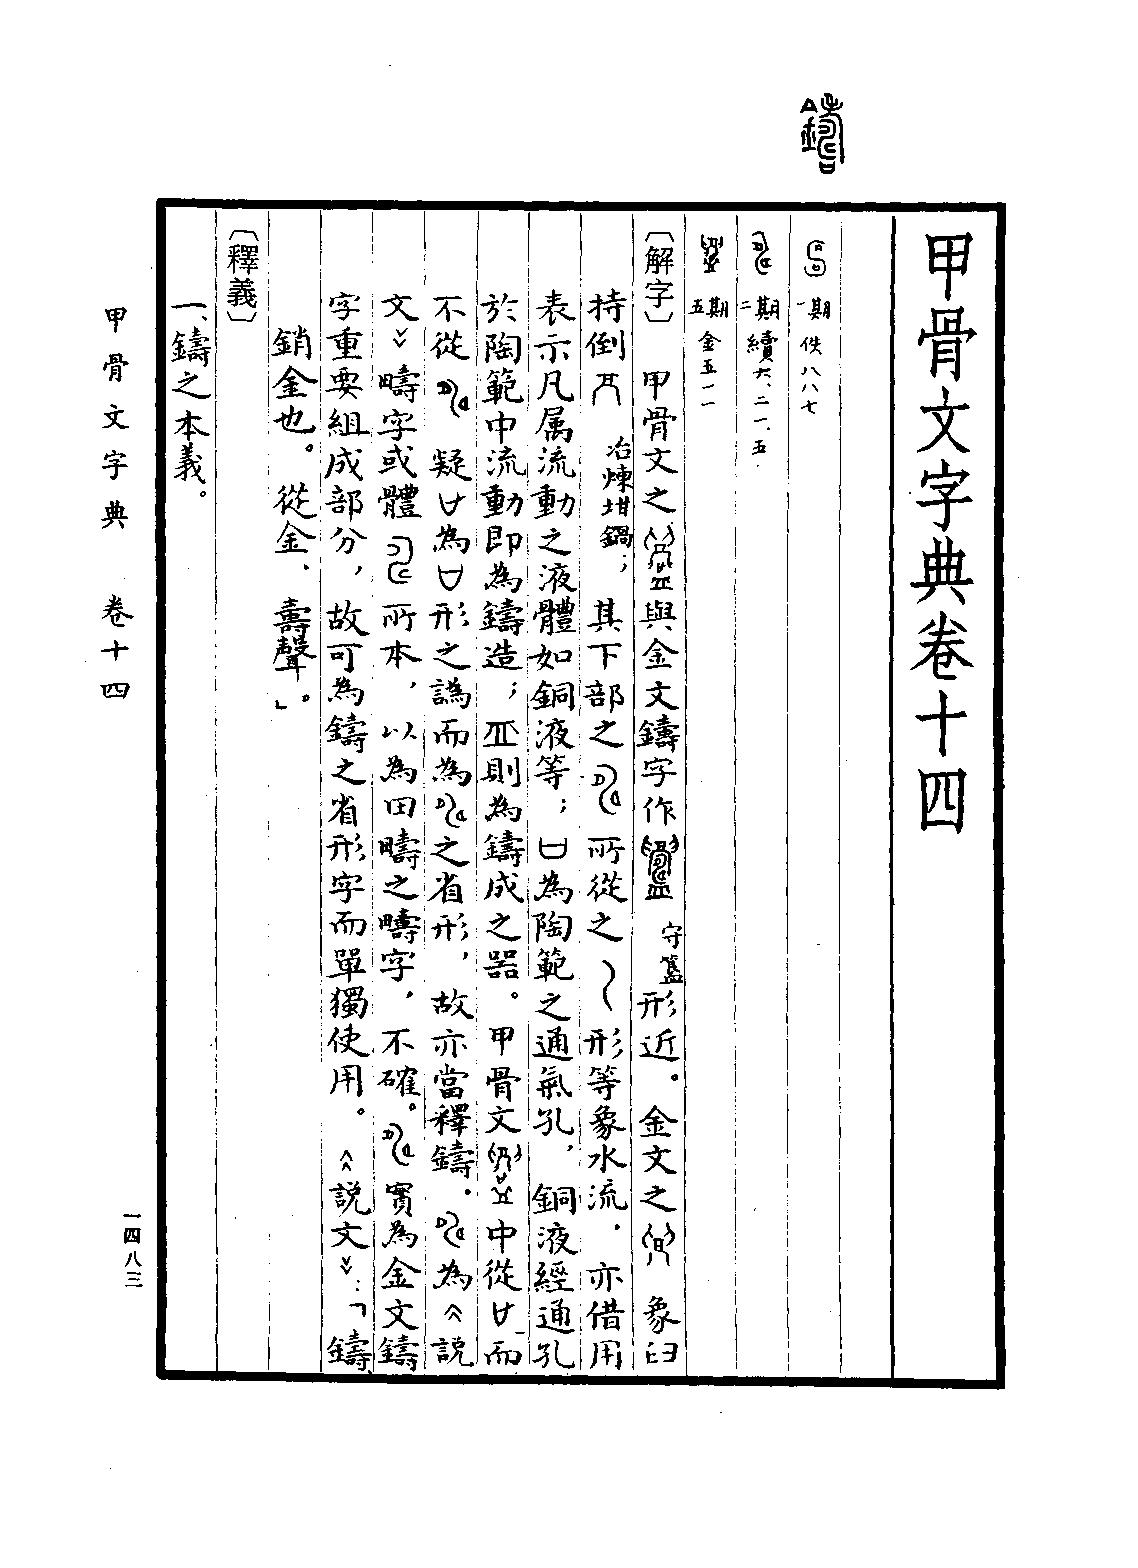 甲骨文字典卷十四
一期 佚八八七
二期 續六、二一、五
五期 金五一一
〔解字〕 甲骨文之與金文鑄字作 守簋 形近。金文之 象臼
持倒 冶煉坩鍋; 其下部之 所從之 形等象水流,亦借用
表示凡属流動之液體如銅液等;凵為陶範之通氣孔,銅液經通孔
於陶範中流動即為鑄造;則為鑄成之器。甲骨文 中從 而
不從 疑 為 形之譌而為 之省形,故亦當釋鑄。 為《說
文》疇字或體 所本,以為田疇之疇字,不確。 實為金文鑄
字重要組成部分,故可為鑄之省形字而單獨使用。《說文》:「鑄,
銷金也。從金、壽聲。」
〔釋義〕
一、鑄之本義。
甲骨文字典 卷十四
一四八三